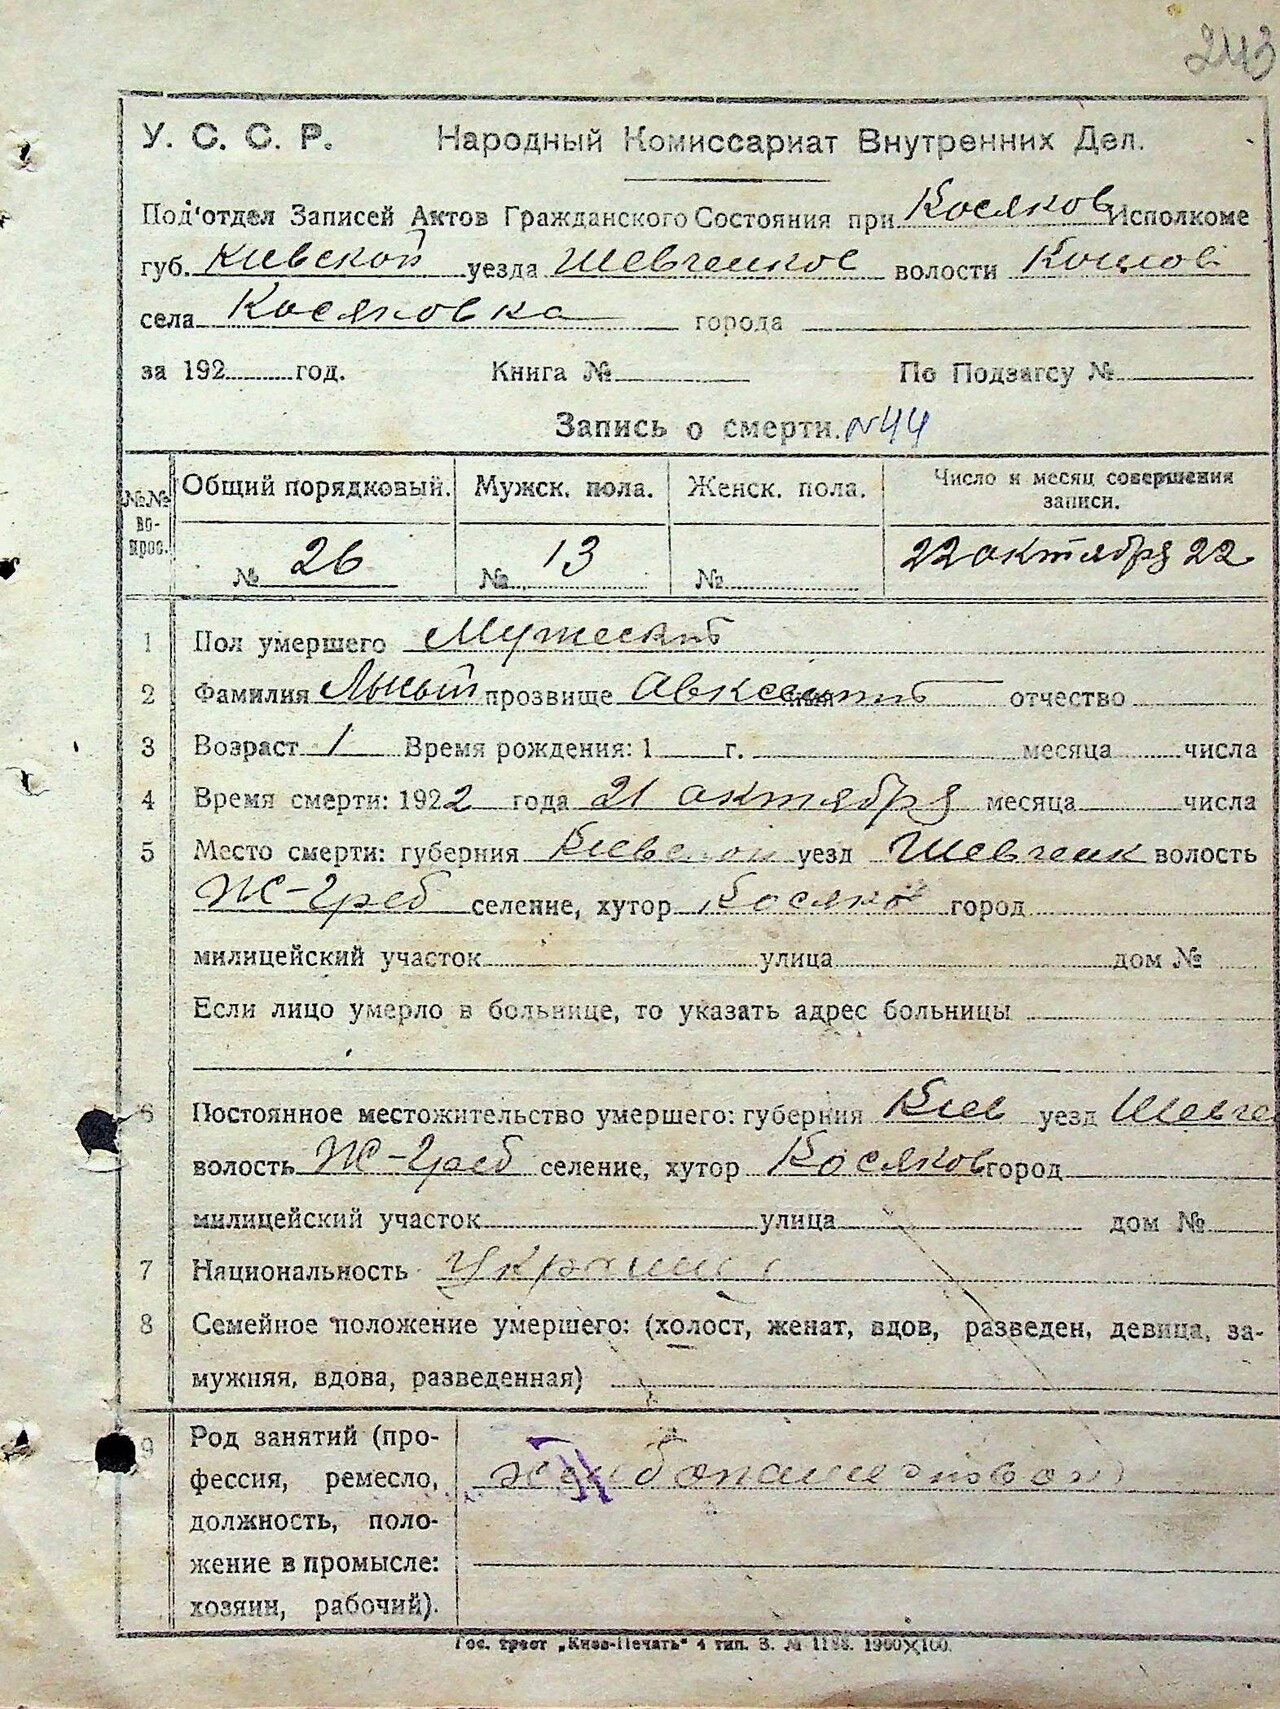 243
У. С. С. Р. Народный Комиссариат Внутренних Дел.
Под'отдел Записей Актов Гражданского Состояния при Косяков Исполкоме
губ. Киевской уезда Шевченкое волости
села Косяковка города
за 192 год. Книга № По Подзагсу №
Запись о смерти. N44
№№ вопрос. Общий порядковый. Мужск. пола. Женск. пола. Число и месяц совершения записи.
№ 26 № 13 № 22 октября 22
1 Пол умершего Мужеский
2 Фамилия прозвище Авксентий отчество
3 Возраст 1 Время рождения: 1 г. месяца числа
4 Время смерти: 1922 года 21 октября месяца числа
5 Место смерти: губерния Киевской уезд Шевченк волость
Ж-Греб селение, хутор Косяко город
милицейский участок улица дом №
Если лицо умерло в больнице, то указать адрес больницы
6 Постоянное местожительство умершего: губерния Киев уезд Шевче
волость Ж-Греб селение, хутор Косяков город
милицейский участок улица дом №
7 Национальность
8 Семейное положение умершего: (холост, женат, вдов, разведен, девица, за-
мужняя, вдова, разведенная)
9 Род занятий (про-
фессия, ремесло,
должность, поло-
жение в промысле:
хозяин, рабочий).
Гос. трест „Киев-Печать" 4 тип. З. № 1188. 1900×100.